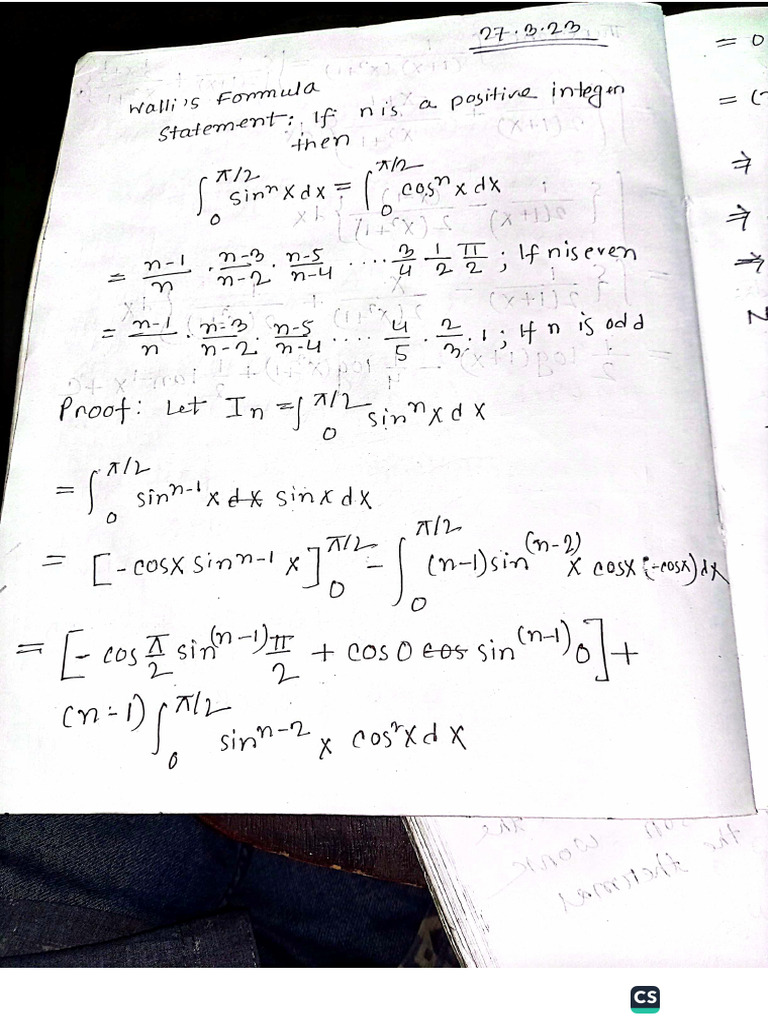 27.3.23
Walli's Formula
Statement: If n is a positive integer
then
∫₀^π/2 sinⁿ x dx = ∫₀^π/2 cosⁿ x dx
= n-1/n · n-3/n-2 · n-5/n-4 .... 3/4 · 1/2 · π/2 ; If n is even
= n-1/n · n-3/n-2 · n-5/n-4 .... 4/5 · 2/3 · 1 ; If n is odd
Proof: Let Iₙ = ∫₀^π/2 sinⁿ x dx
= ∫₀^π/2 sinⁿ⁻¹ x dx sin x dx
= [-cosx sinⁿ⁻¹ x]₀^π/2 - ∫₀^π/2 (n-1) sin^(n-2) x cosx (-cosx) dx
= [-cos π/2 sin^(n-1) π/2 + cos 0 cos sin^(n-1) 0] +
(n-1) ∫₀^π/2 sinⁿ⁻² x cos²x dx
= 0
= (
⇒
⇒
⇒
N
CS